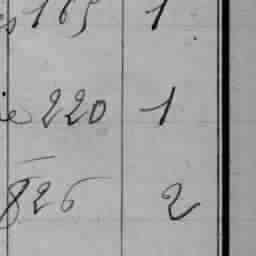 165 1
220 1
826 2